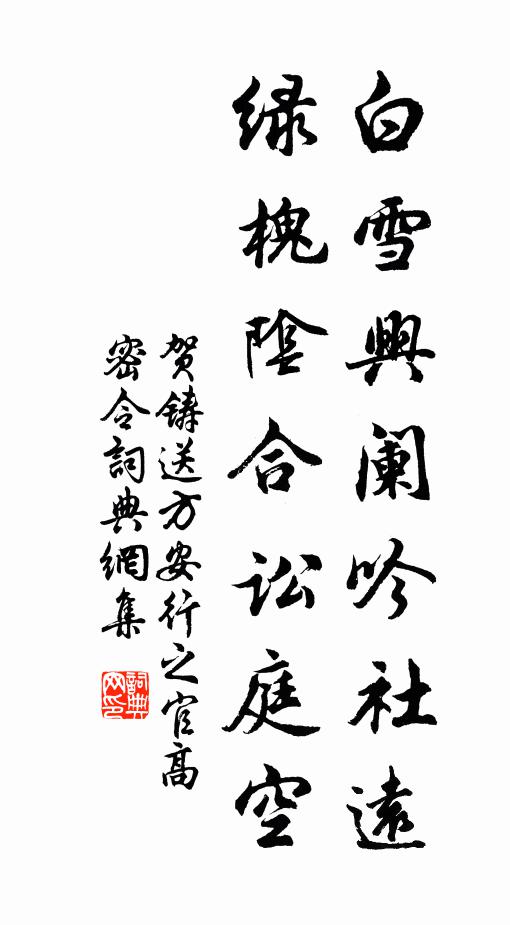 白雪興阑吟社遠
绿槐陰合讼庭空
贺铸送方安行之官高
密令詞典網集
詞典网印